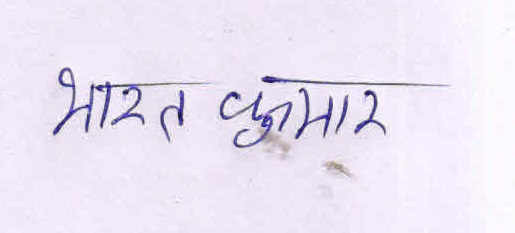 भारत कुमार